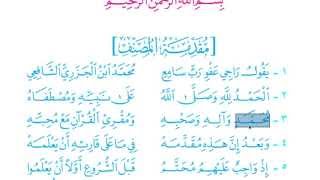 بِسْمِ اللهِ الرَّحْمٰنِ الرَّحِيْمِ
[مُقَدِّمَةُ الْمُصَنِّفِ]
١ - يَقُولُ رَاجِي عَفْوِ رَبٍّ سَامِعِ مُحَمَّدُ ابْنُ الْجَزَرِيِّ الشَّافِعِي
٢ - الْحَمْدُ لِلَّهِ وَصَلَّى اللَّهُ عَلَى نَبِيِّهِ وَمُصْطَفَاهُ
٣ - مُحَمَّدٍ وَآلِهِ وَصَحْبِهِ وَمُقْرِئِ الْقُرْآنِ مَعْ مُحِبِّهِ
٤ - وَبَعْدُ إِنَّ هَذِهِ مُقَدِّمَهْ فِيمَا عَلَى قَارِئِهِ أَنْ يَعْلَمَهْ
٥ - إِذْ وَاجِبٌ عَلَيْهِمُ مُحَتَّمُ قَبْلَ الشُّرُوعِ أَوَّلًا أَنْ يَعْلَمُوا